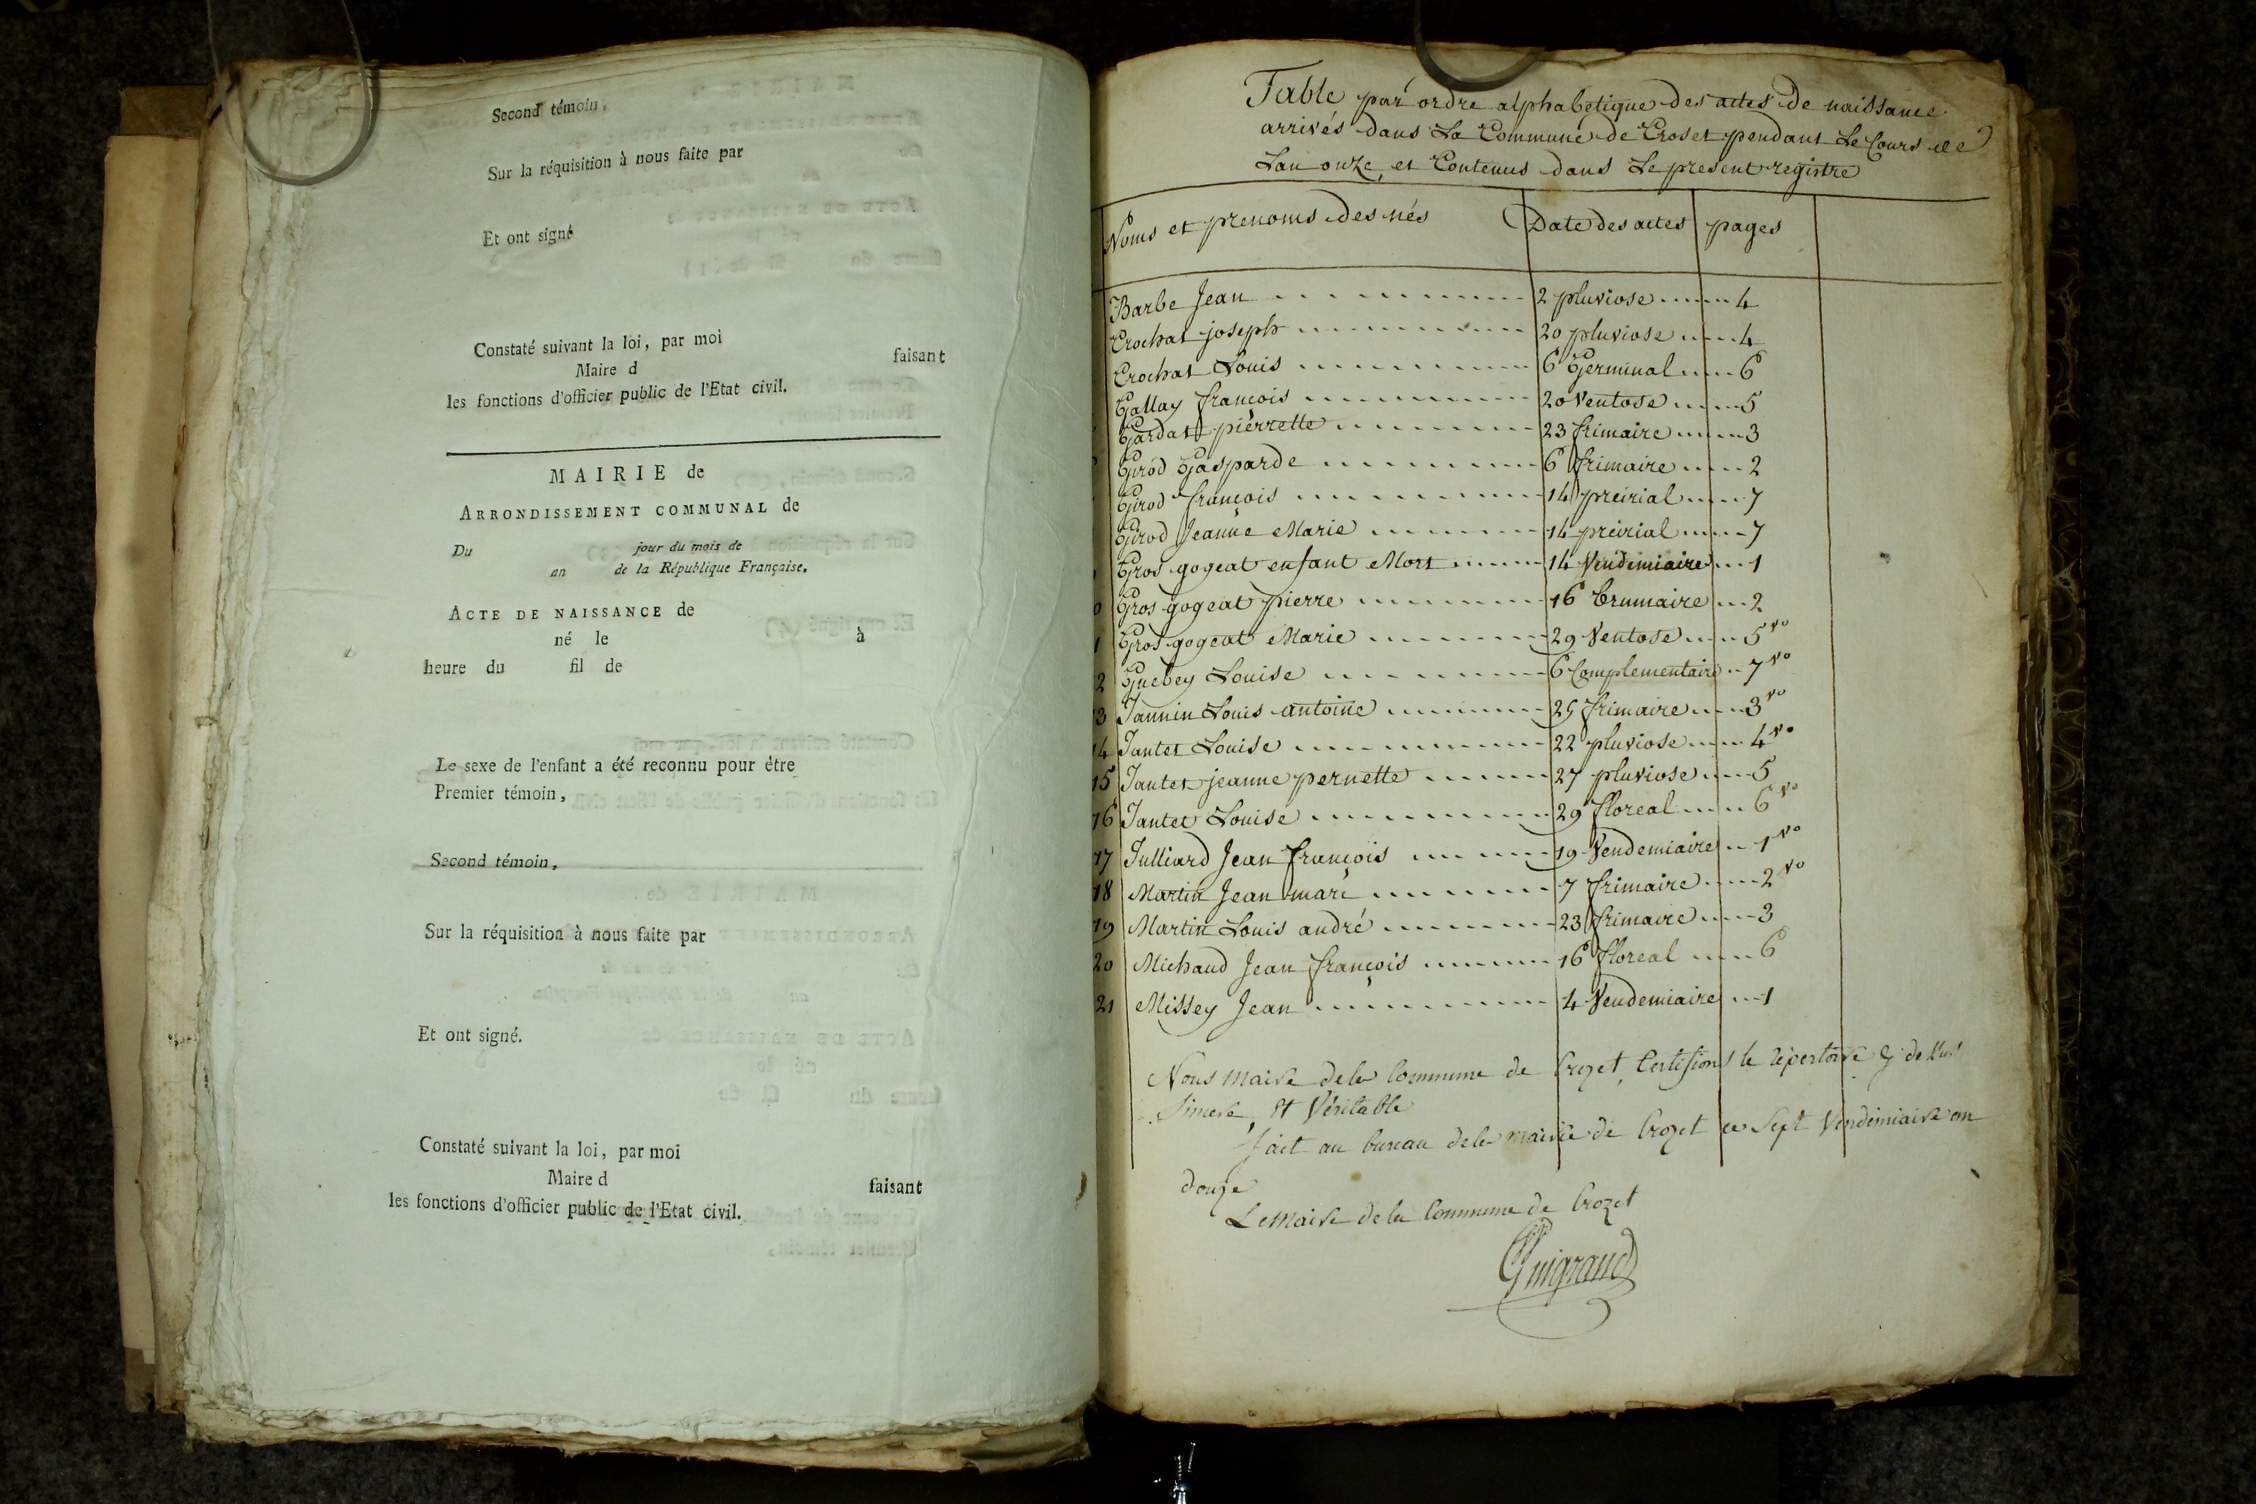 Second témoin,
Sur la réquisition à nous faite par
Et ont signé
Constaté suivant la loi, par moi
Maire d faisant
les fonctions d'officier public de l'Etat civil.
MAIRIE de
ARRONDISSEMENT COMMUNAL de
Du jour du mois de
an de la République Française.
ACTE DE NAISSANCE de
né le à
heure du fil de
Le sexe de l'enfant a été reconnu pour être
Premier témoin,
Second témoin,
Sur la réquisition à nous faite par
Et ont signé.
Constaté suivant la loi, par moi
Maire d faisant
les fonctions d'officier public de l'Etat civil.
Table par ordre alphabetique des actes de naissance
arrivés dans La Commune de Croset pendant Le Cours de
Lan onze, et Contenus dans Le present registre
Noms et prenoms des nés Date des actes pages
Barbe Jean 2 pluviose 4
Crochat joseph 20 pluviose 4
Crochat Louis 6 Germinal 6
Gallay françois 20 Ventose 5
Gardat pierrette 23 frimaire 3
Girod Gasparde 6 frimaire 2
Girod françois 14 preirial 7
Girod Jeanne Marie 14 preirial 7
Gros gogeat enfant Mort 14 Vendemiaire 1
Gros gogeat pierre 16 brumaire 2
1 Gros gogeat Marie 29 Ventose 5 vo
2 Guebey Louise 6 Complementaire 7 vo
3 Jannin Louis antoine 25 frimaire 3 vo
14 Jantet Louise 22 pluviose 4 vo
15 Jantet jeanne pernette 27 pluviose 5
16 Jantet Louise 29 floreal 6 vo
17 Julliard Jean françois 19 Vendemiaire 1 vo
18 Martin Jean mari 7 frimaire 2 vo
19 Martin Louis andré 23 frimaire 3
20 Michaud Jean françois 16 floreal 6
21 Missey Jean 4 Vendemiaire 1
Nous Maire dela Commune de Crozet, Certifions le repertoire
Sincere, et Véritable
fait au bureau dela mairie de Crozet ce Sept Vendemiaire an
douze
Le Maire dela Commune de Crozet